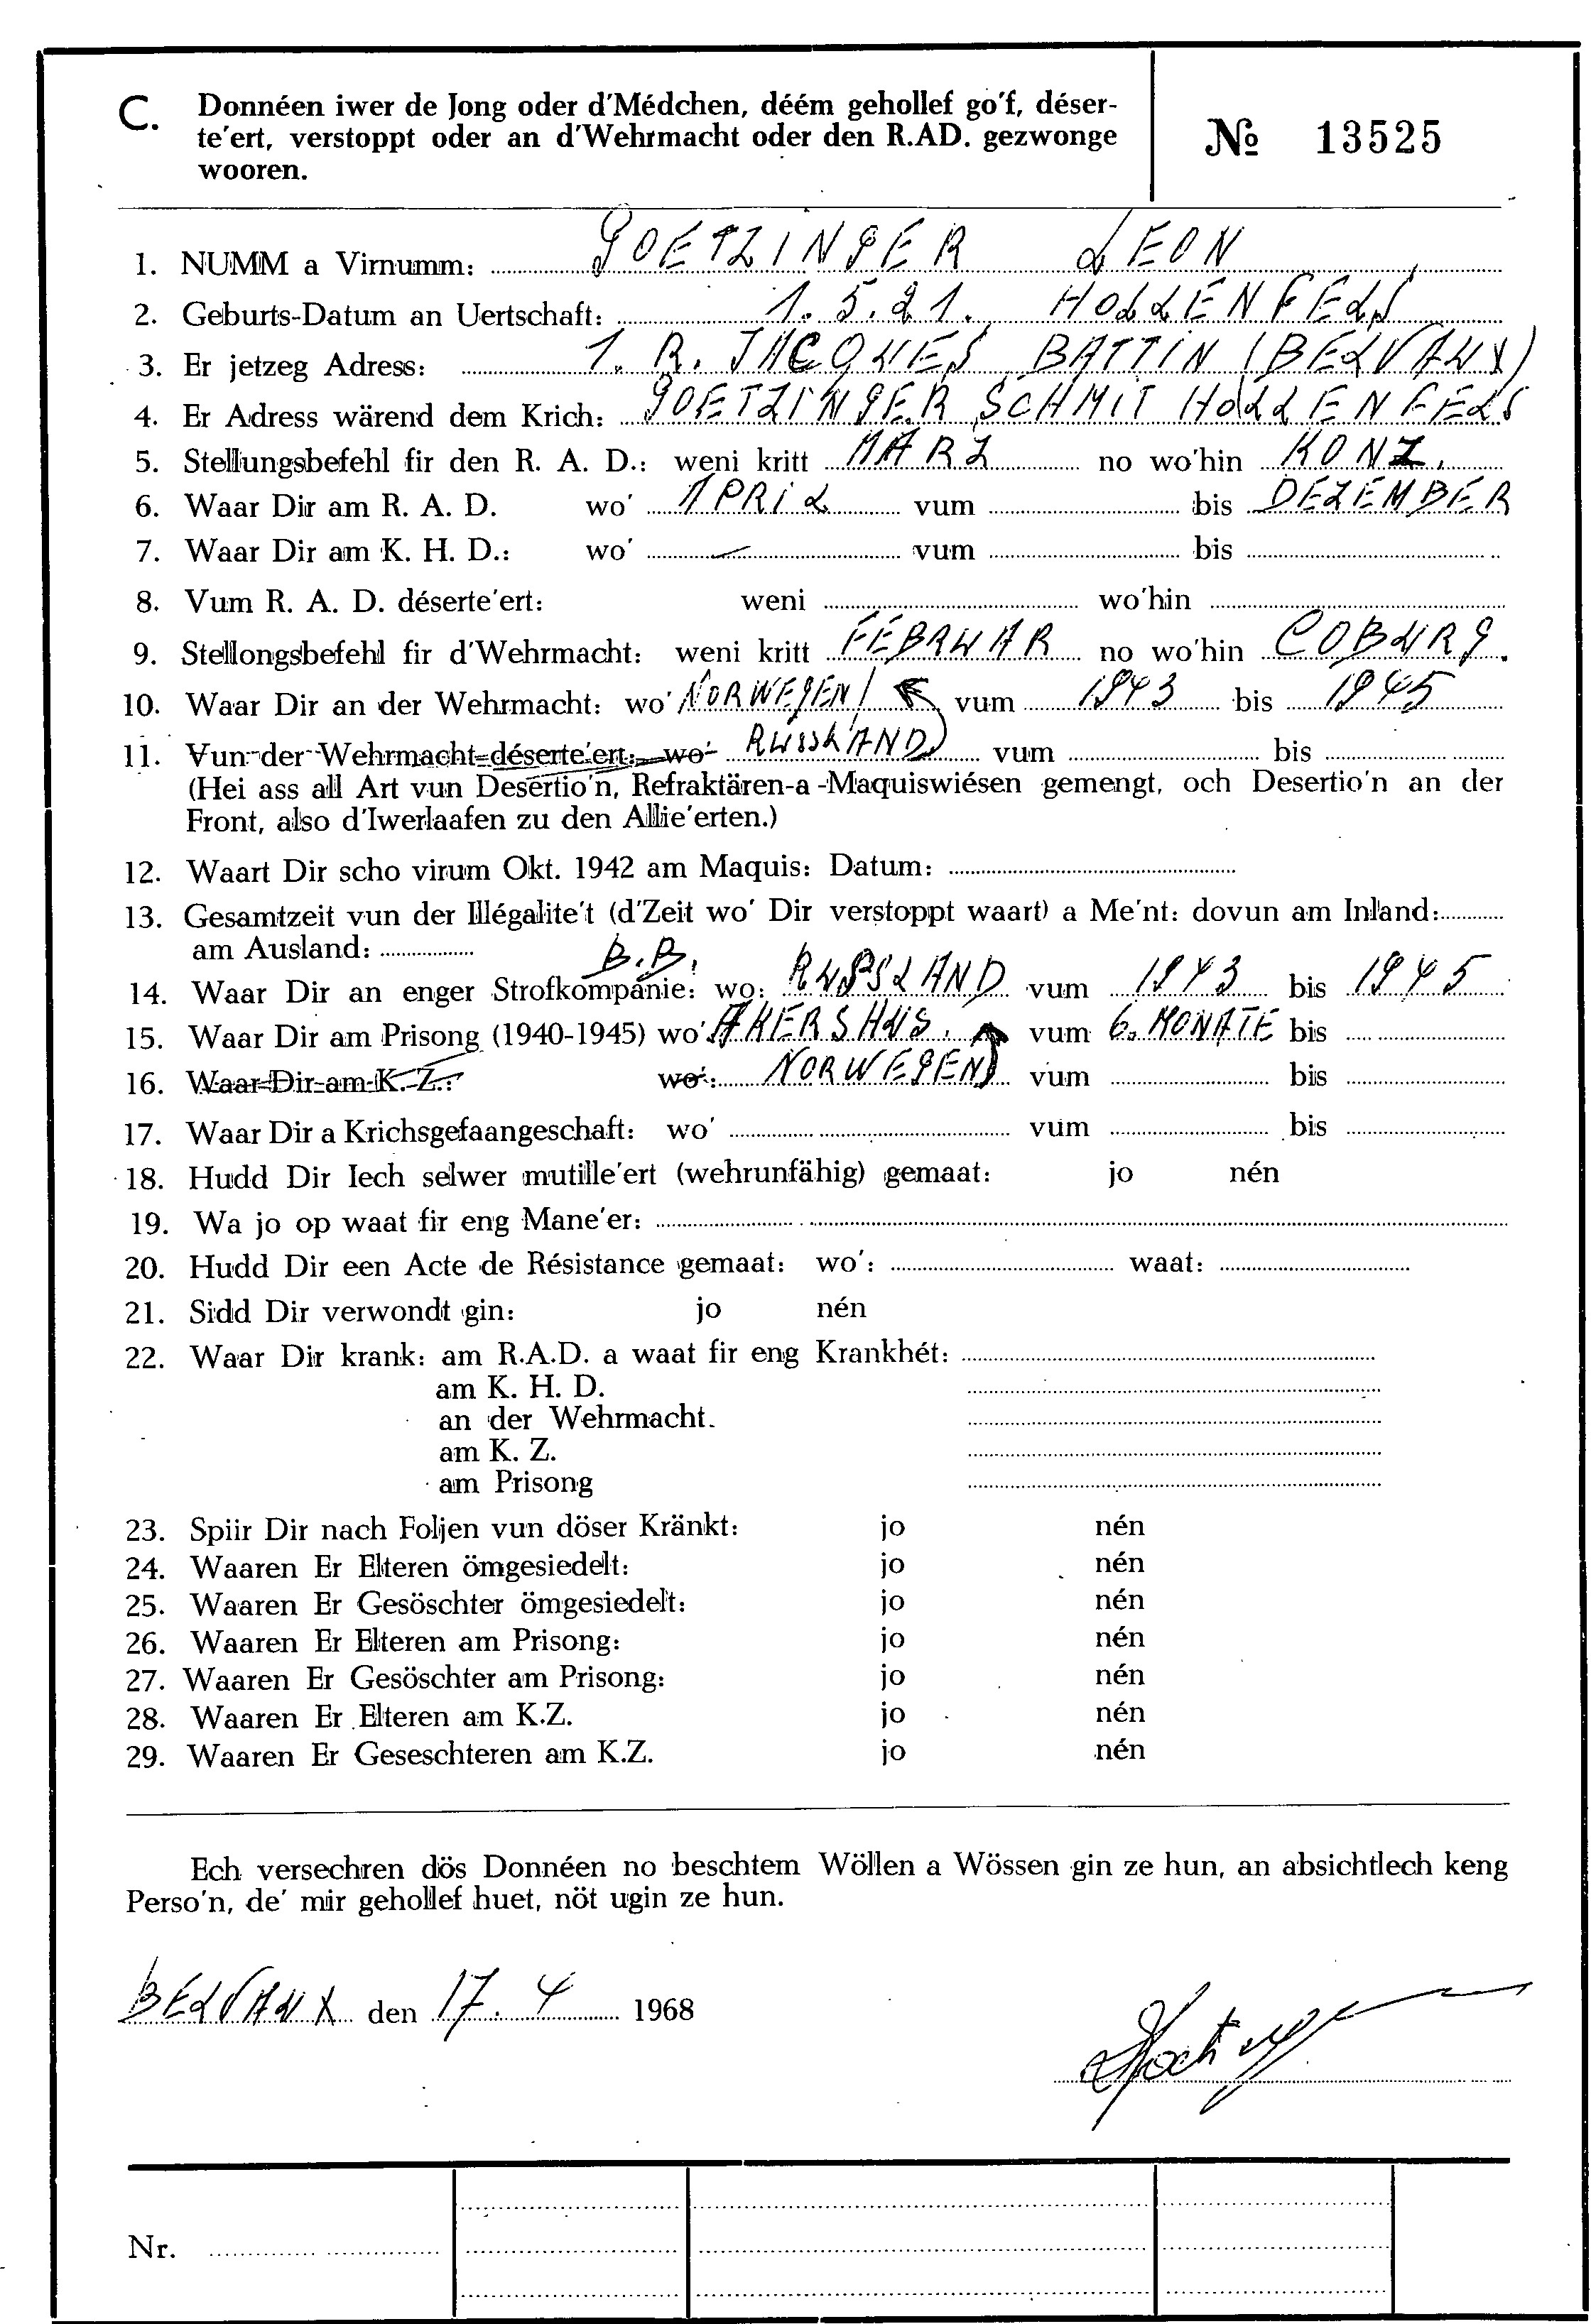 C. Donnéen iwer de Jong oder d'Médchen, déém gehollef go'f, déser-
te'ert, verstoppt oder an d'Wehrmacht oder den R.AD. gezwonge
wooren.
№ 13525
1. NUMM a Virnumm: GOETZINGER LEON
2. Geburts-Datum an Uertschaft: 1. 5. 21. HOLLENFELS
3. Er jetzeg Adress: 1. R. JACQUES BATTIN (BELVAUX)
4. Er Adress wärend dem Krich: GOETZINGER SCHMIT HOLLENFELS
5. Stellungsbefehl fir den R. A. D.: weni kritt MÄRZ no wo'hin KONZ.
6. Waar Dir am R. A. D. wo' APRIL vum bis DEZEMBER
7. Waar Dir am K. H. D.: wo' — vum bis
8. Vum R. A. D. déserte'ert: weni wo'hin
9. Stellongsbefehl fir d'Wehrmacht: weni kritt FEBRUAR no wo'hin COBURG.
10. Waar Dir an der Wehrmacht: wo' NORWEGEN/ vum 1943 bis 1945
11. Vun der Wehrmacht déserte'ert: wo' RUSSLAND vum bis
(Hei ass all Art vun Desertio'n, Refraktären-a-Maquiswiésen gemengt, och Desertio'n an der
Front, also d'Iwerlaafen zu den Allie'erten.)
12. Waart Dir scho virum Okt. 1942 am Maquis: Datum:
13. Gesamtzeit vun der Illégalite't (d'Zeit wo' Dir verstoppt waart) a Me'nt: dovun am Inland:
am Ausland:
B.B.
14. Waar Dir an enger Strofkompanie: wo: RUSSLAND vum 1943 bis 1945
15. Waar Dir am Prisong (1940-1945) wo' AKERSHUS. vum 6. MONATE bis
16. Waar Dir am K. Z.: wo': NORWEGEN vum bis
17. Waar Dir a Krichsgefaangeschaft: wo' vum bis
18. Hudd Dir Iech selwer mutille'ert (wehrunfähig) gemaat: jo nén
19. Wa jo op waat fir eng Mane'er:
20. Hudd Dir een Acte de Résistance gemaat: wo': waat:
21. Sidd Dir verwondt gin: jo nén
22. Waar Dir krank: am R.A.D. a waat fir eng Krankhét:
am K. H. D.
an der Wehrmacht.
am K. Z.
am Prisong
23. Spiir Dir nach Foljen vun döser Kränkt: jo nén
24. Waaren Er Elteren ömgesiedelt: jo nén
25. Waaren Er Gesöschter ömgesiedelt: jo nén
26. Waaren Er Elteren am Prisong: jo nén
27. Waaren Er Gesöschter am Prisong: jo nén
28. Waaren Er Elteren am K.Z. jo nén
29. Waaren Er Geseschteren am K.Z. jo nén
Ech versechren dös Donnéen no beschtem Wöllen a Wössen gin ze hun, an absichtlech keng
Perso'n, de' mir gehollef huet, nöt ugin ze hun.
BELVAUX den 17. 4 1968
Nr.